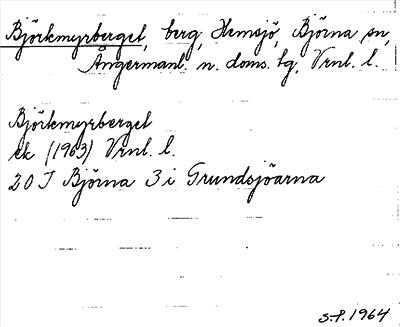 Björkmyrberget, berg, Hemsjö, Björna sn,
Ångermanl. n. doms. tg, Vrnl. l.
Björkmyrberget
ek (1963) Vrnl. l.
20 I Björna 3 i Grundsjöarna
S.P. 1964